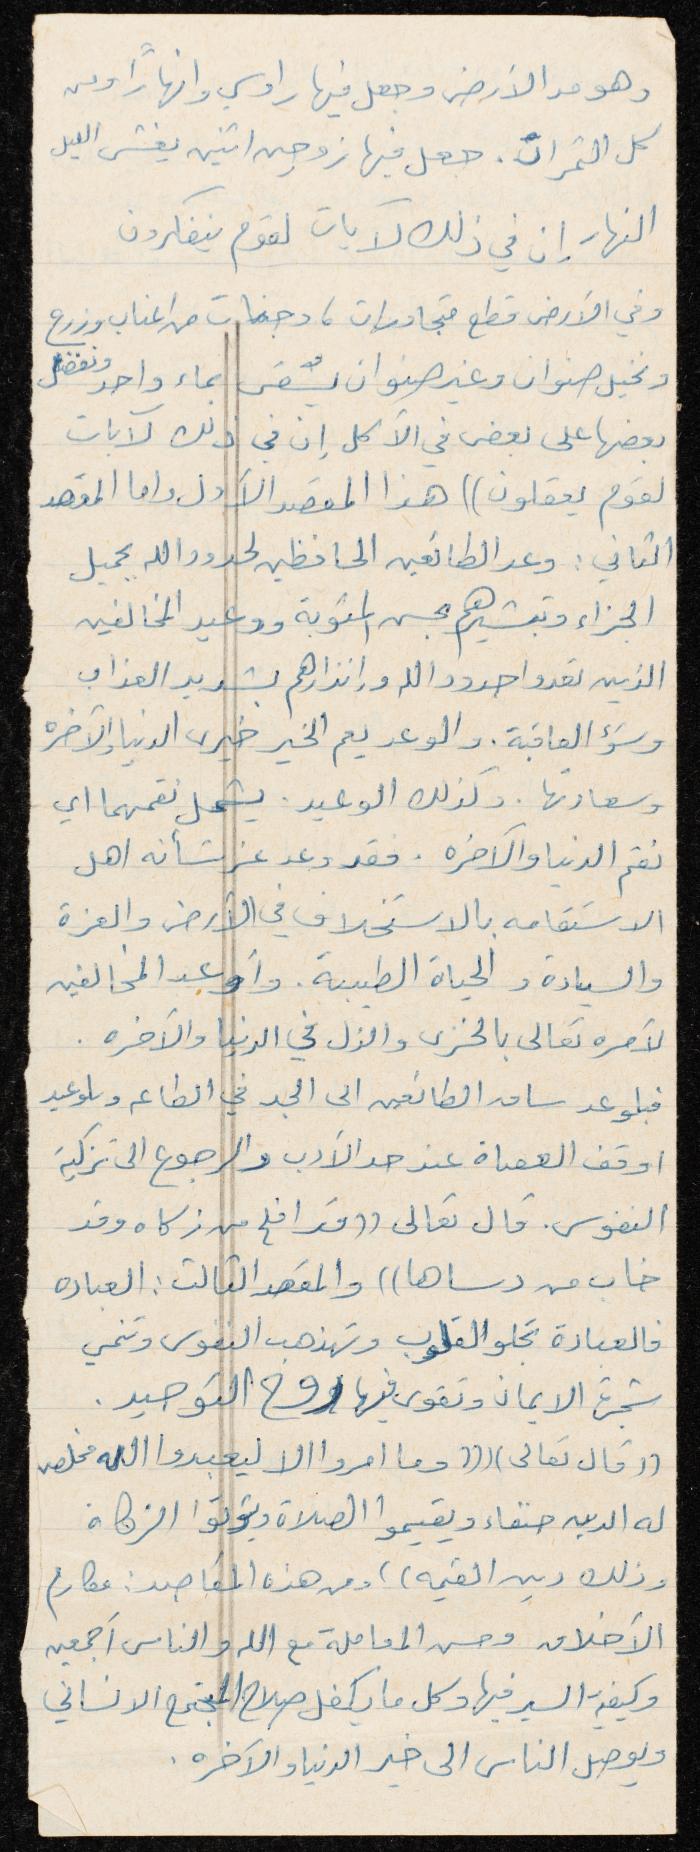 وهو مد الأرض وجعل فيها رواسي وانهاراً ومن
كل الثمرات . جعل فيها زوجين اثنين يغشى الليل
النهار إن في ذلك لآيات لقوم يتفكرون
وفي الأرض قطع متجاورات ، وجنات من اعناب وزرع
ونخيل صنوان وغير صنوان يسقى بماء واحد ونفضل
بعضها على بعض في الأكل إن في ذلك لآيات
لقوم يعقلون )) هذا المقصد الأول واما المقصد
الثاني : وعد الطائعين الحافظين لحدود الله بجميل
الجزاء وتبشيرهم بحسن المثوبة ووعيد المخالفين
الذين تعدوا حدود الله وإنذارهم بشديد العذاب
وسوء العاقبة . والوعد يعم الخير خيرى الدنيا والآخره
وسعادتها . وكذلك الوعيد . يشمل نقمهما اي
نقم الدنيا والآخره . فقد وعد عز شأنه اهل
الاستقامه بالاستخلاف في الأرض والعزة
والسيادة و الحياة الطيبة . وأوعد المخالفين
لأمره تعالى بالخزى والذل في الدنيا والآخره .
فبلوعد ساق الطائعين الى الجد في الطاعه وبلوعيد
اوقف العصاة عند حد الأدب والرجوع الى تزكية
النفوس . قال تعالى (( قد افلح من زكاه وقد
خاب من دساها )) والمقصد الثالث : العباده
فالعبادة تجلو القلوب وتهذب النفوس وتنمي
شجرة الايمان وتقوى فيها روح التوحيد .
(( قال تعالى ) ((( وما امروا الا ليعبدوا الله مخلصين
له الدين حنفاء ويقيموا الصلاة ويؤتوا الزكاة
وذلك دين القيمه )) ومن هذه المقاصد : مكارم
الأخلاق وحسن المعاملة مع الله والناس أجمعين
وكيفية السير فيها وكل ما يكفل صلاح المجتمع الانساني
ويوصل الناس الى خير الدنيا والآخره .